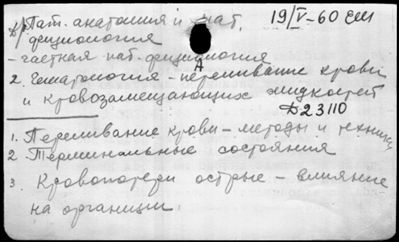 1) Пат. анатомия и пат. физиология 19/V-60 ЕМ
- частная пат. физиология
2. Гематология - переливание крови
и кровозамещающих жидкостей
Д23110
1. Переливание крови - методы и техника
2. Терминальные состояния
3. Кровопотери острые - влияние
на организм.